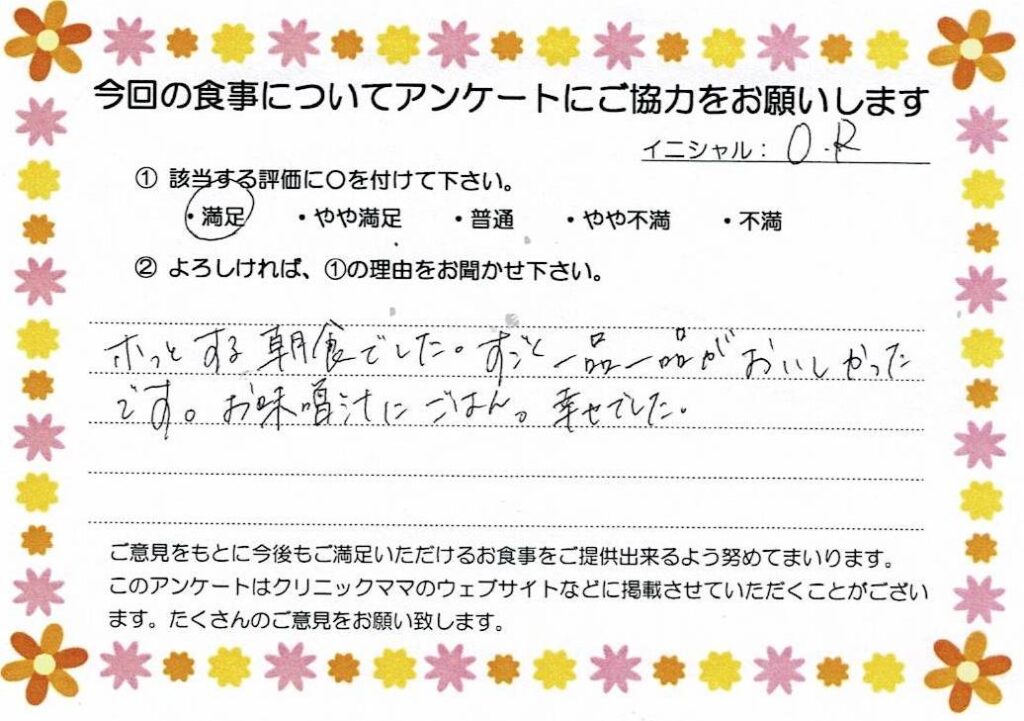 今回の食事についてアンケートにご協力をお願いします
イニシャル： O.R
① 該当する評価に〇を付けて下さい。
・満足 ・やや満足 ・普通 ・やや不満 ・不満
② よろしければ、①の理由をお聞かせ下さい。
ホっとする朝食でした。すごく一品一品がおいしかった
です。お味噌汁にごはん。幸せでした。
ご意見をもとに今後もご満足いただけるお食事をご提供出来るよう努めてまいります。
このアンケートはクリニックママのウェブサイトなどに掲載させていただくことがござい
ます。たくさんのご意見をお願い致します。